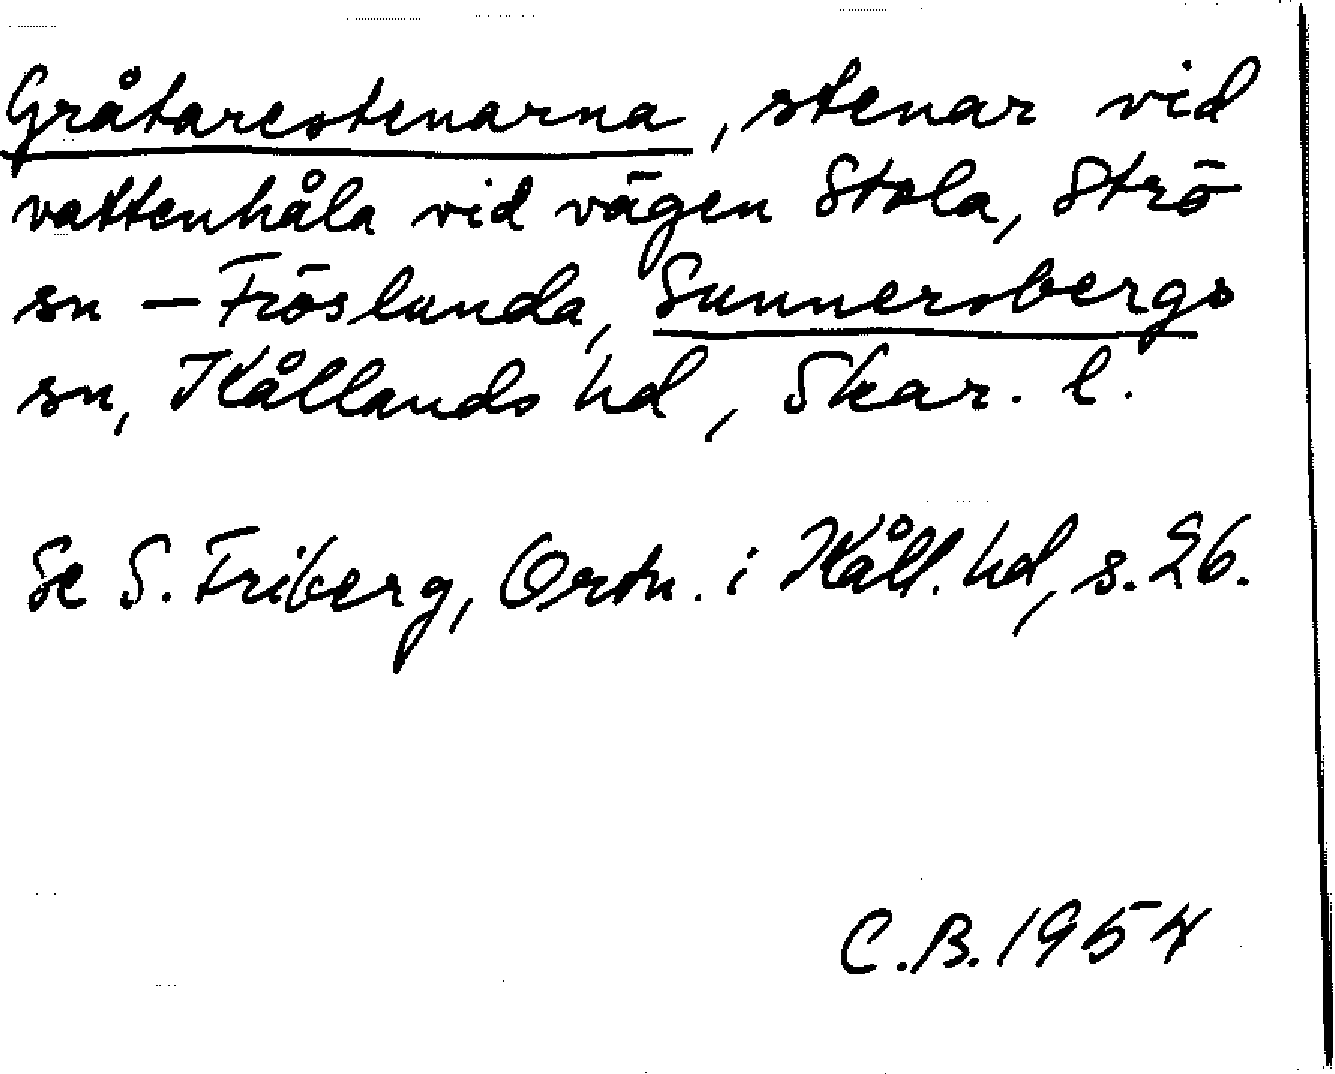 Gråtarestenarna, stenar vid
vattenhåla vid vägen Stola, Strö
sn – Fröslunda, Sunnersbergs
sn, Kållands hd, Skar. l.
Se S. Friberg, Ortn. i Kåll. hd, s. 26.
C.B. 1954